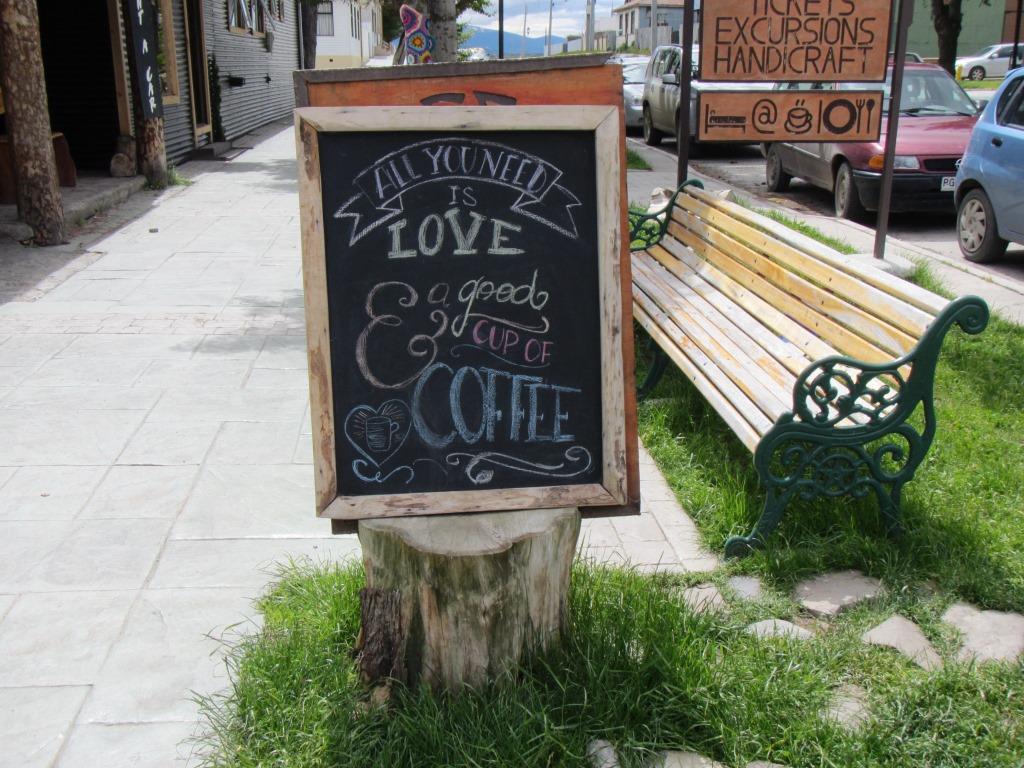 ALL YOU NEED
IS
LOVE
& a good
CUP OF
COFFEE
TICKETS
EXCURSIONS
HANDICRAFT
@
PG